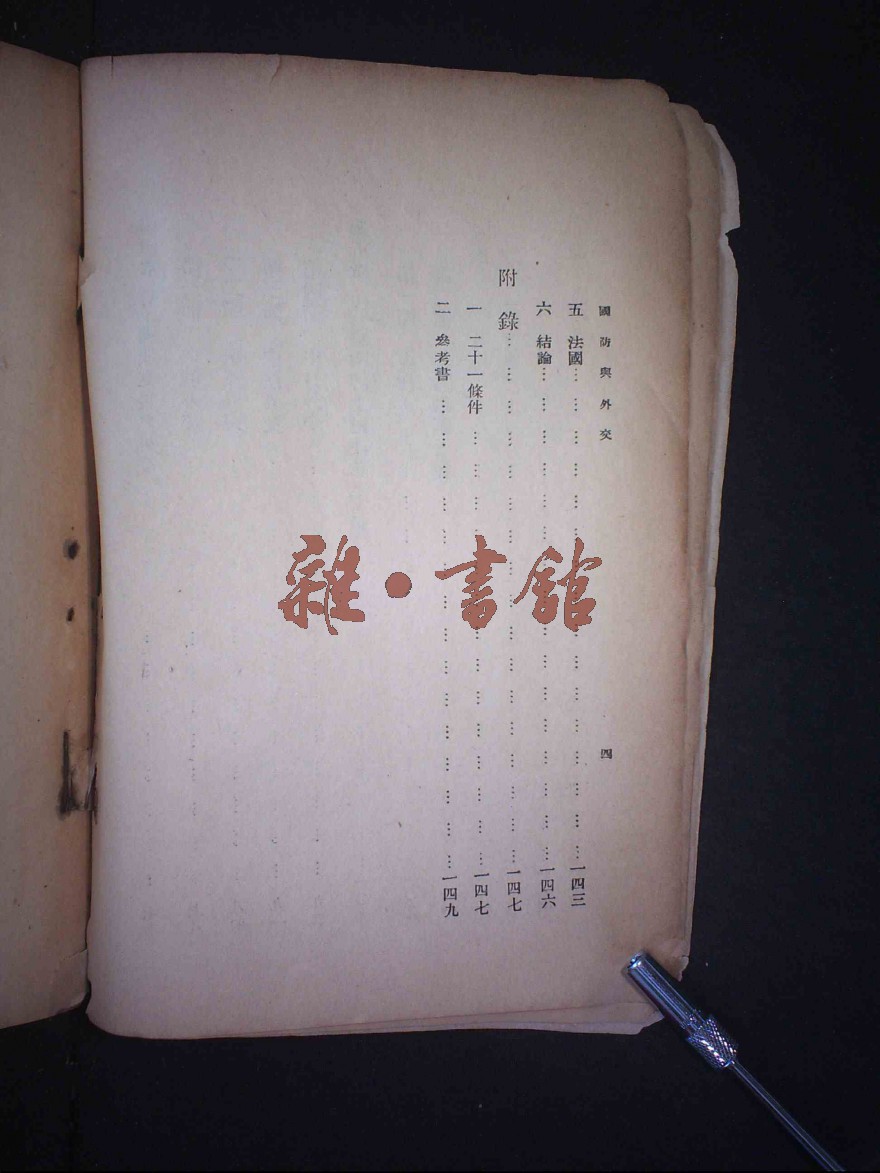 國防與外交 四
五 法國……………………………………………一四三
六 結論……………………………………………一四六
附錄……………………………………………一四七
一 二十一條件……………………………………………一四七
二 參考書……………………………………………一四九
雜·書館